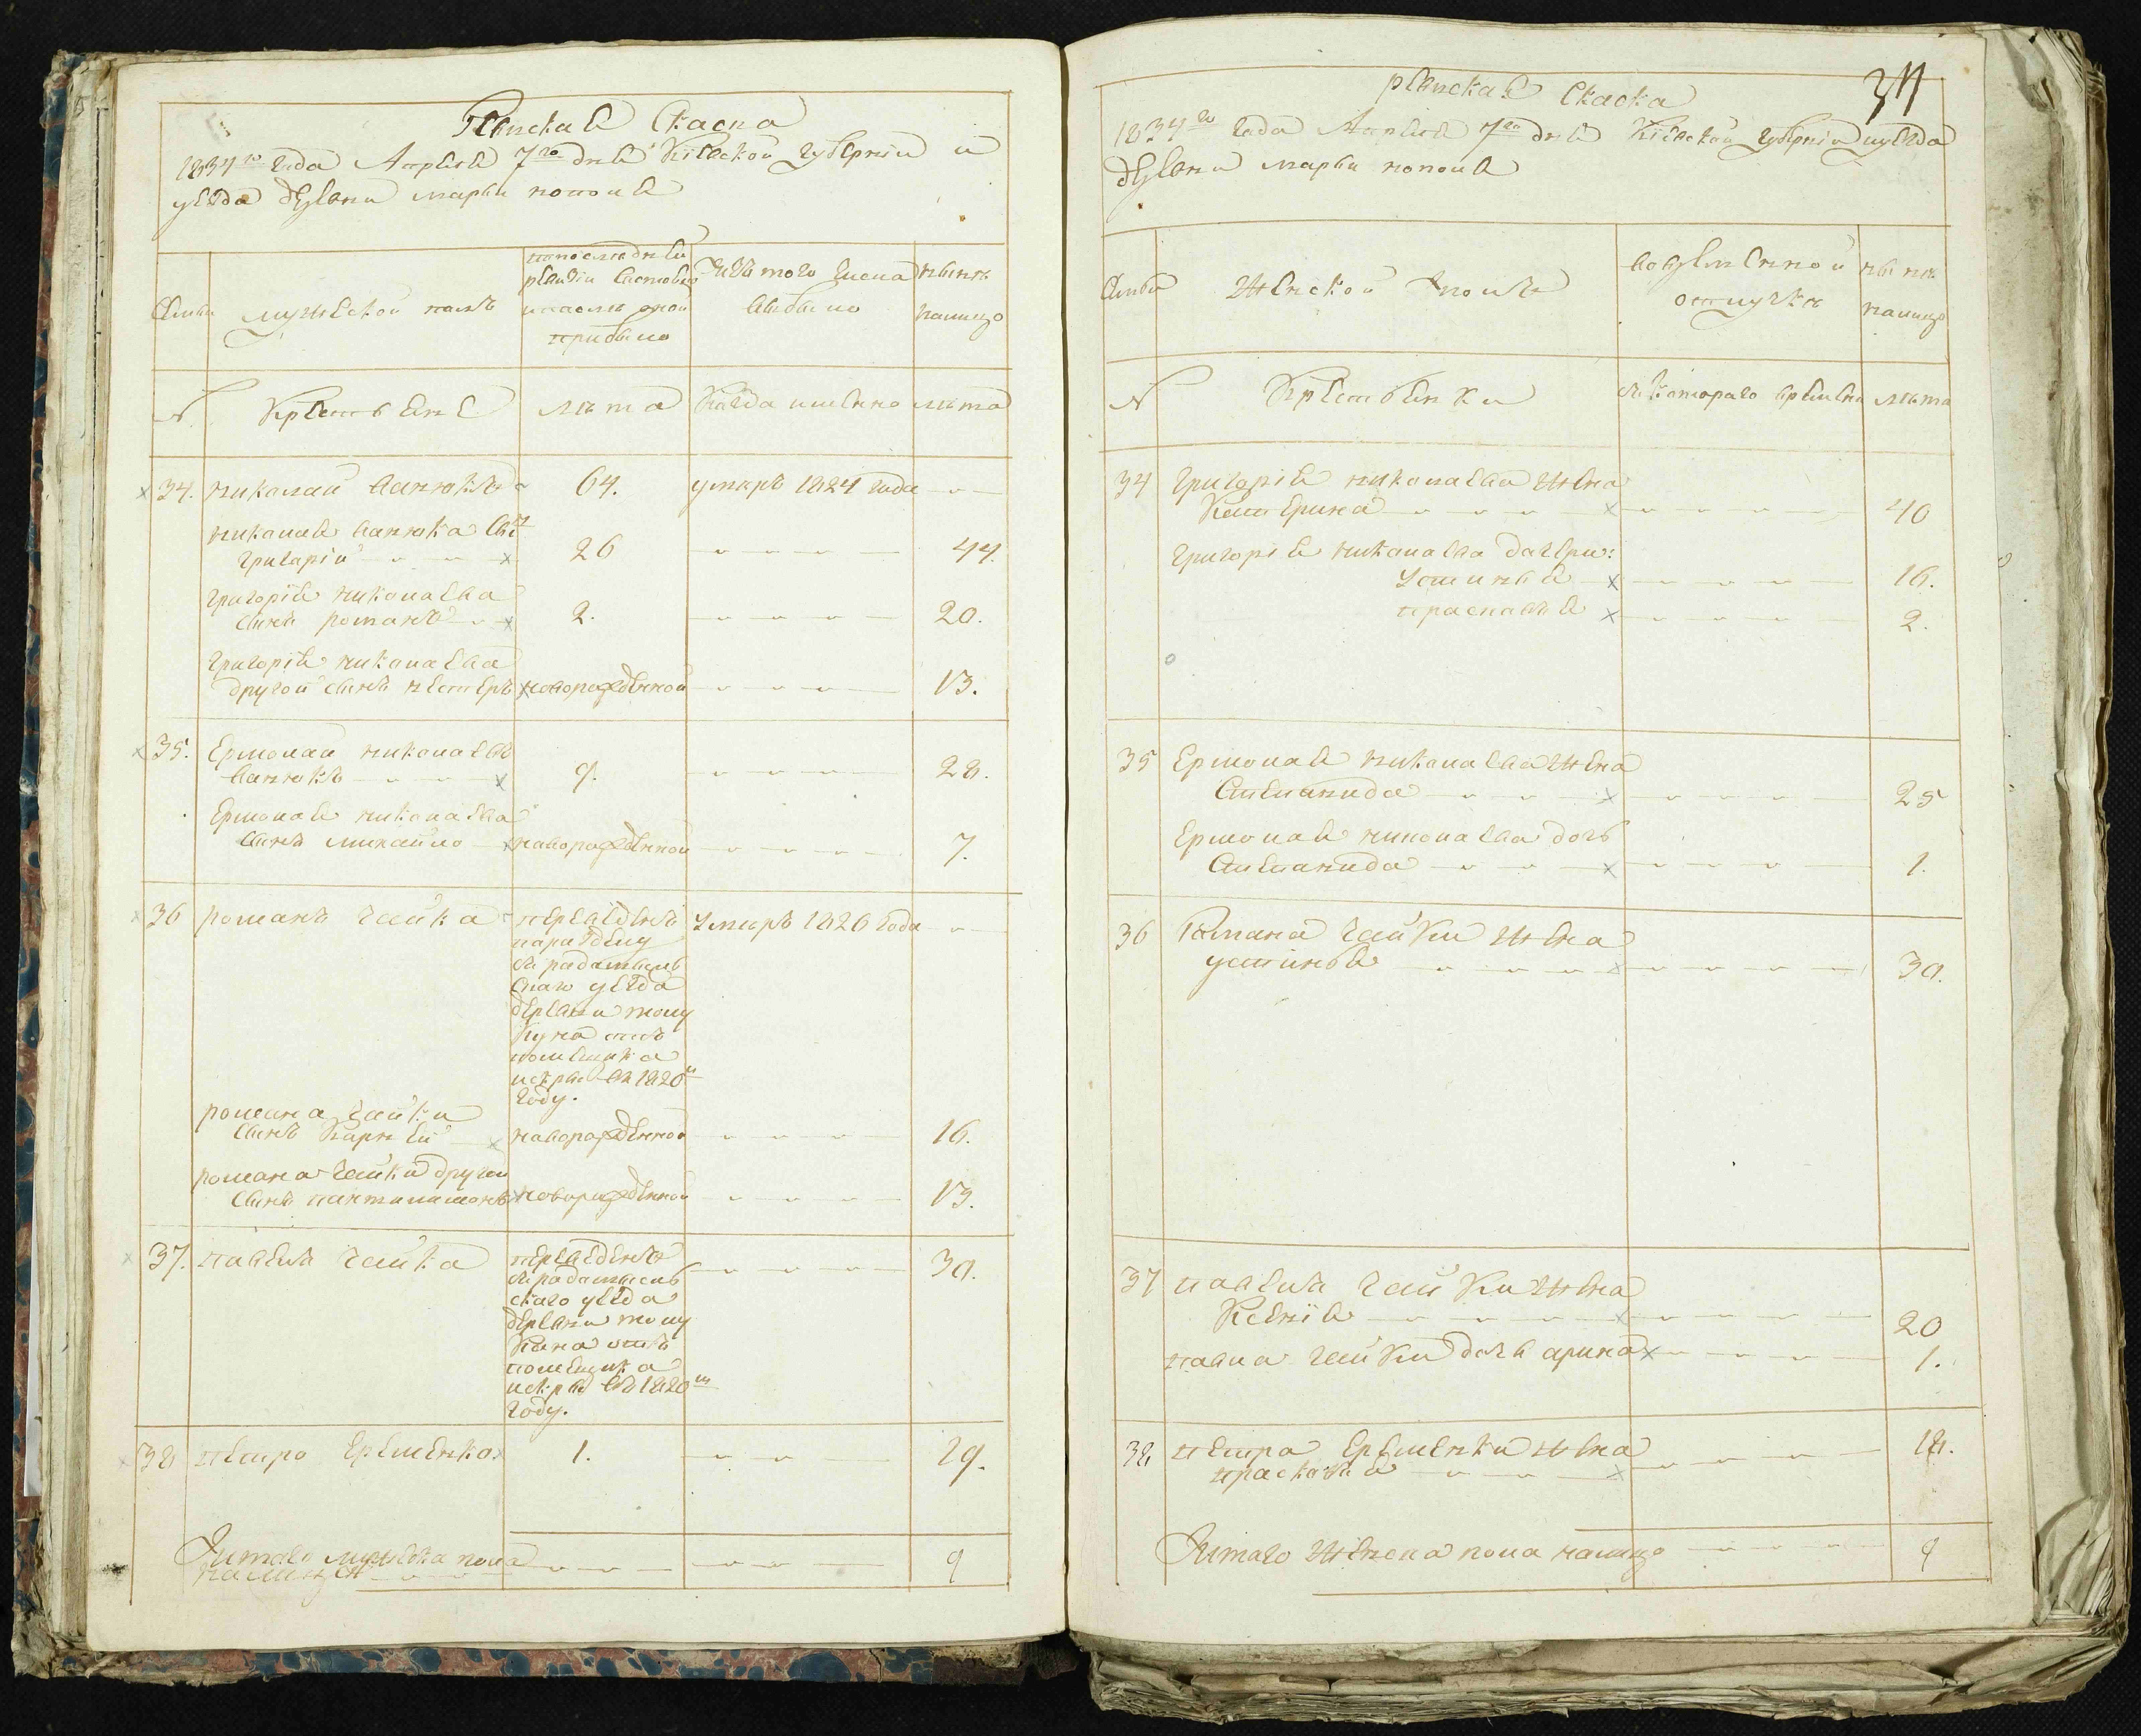 Ревиская Скаска
1834го года Апреля 7го дня Киевской губернии и
уезда деревни марьи
Семьи
мужеской полъ
попоследней
ревизіи состояло
ипосле оной
прибыло
Изъ того числа
выбыло
ныне
налицо
№
Крестьяне
лета
Когда имянно
лета
34. николай Ванюкъ 64. умеръ 1824 года
николая ванюка сынъ
григорій 26 44.
григорія николаева
сынъ романъ 2. 20.
григорія николаева
другой сынъ нестеръ новорожденной 13.
35. Ермолай николаевъ
Ванюкъ 9. 28.
Ермолая николаева
сынъ михайло новорожденной 7.
36 романъ чайка переведенъ умеръ 1826 года
с радамысль
скаго уезда
деревни
отъ
помещика
искры въ 1820м
году.
романа чайки
сынъ Карней новорожденной 16.
романа чайки другой
сынъ пантилимонъ новорожденной 13.
37. павелъ чайка переведенъ 30.
с радамысель
скаго уезда
деревни
отъ
помещика
искры въ 1820м
году.
38 петро Еременко 1. 29.
Итого мужеска пола
налицо 9
311
ревиская Скаска
1834го года Апреля 7го дня Кіевской губерніи и уезда
деревни марьи
Семьи
Женской полъ
вовременной
отлучке
ныне
налицо
№
Крестьянки
съ котораго времени
лета
34 григорія николаева жена
Катерина 40
григорія николаева дочери:
Устинья 16.
прасковья 2.
35 Ермолая николаева жена
Степанида 25
Ермолая николаева дочь
Степанида 1.
36 Романа чайки жена
устинья 30.
37 павела чайки жена
Ксенія 20
павла чайки дочь арина 1.
38 петра Еременки жена 18.
прасковья
Итого женска пола налицо 9